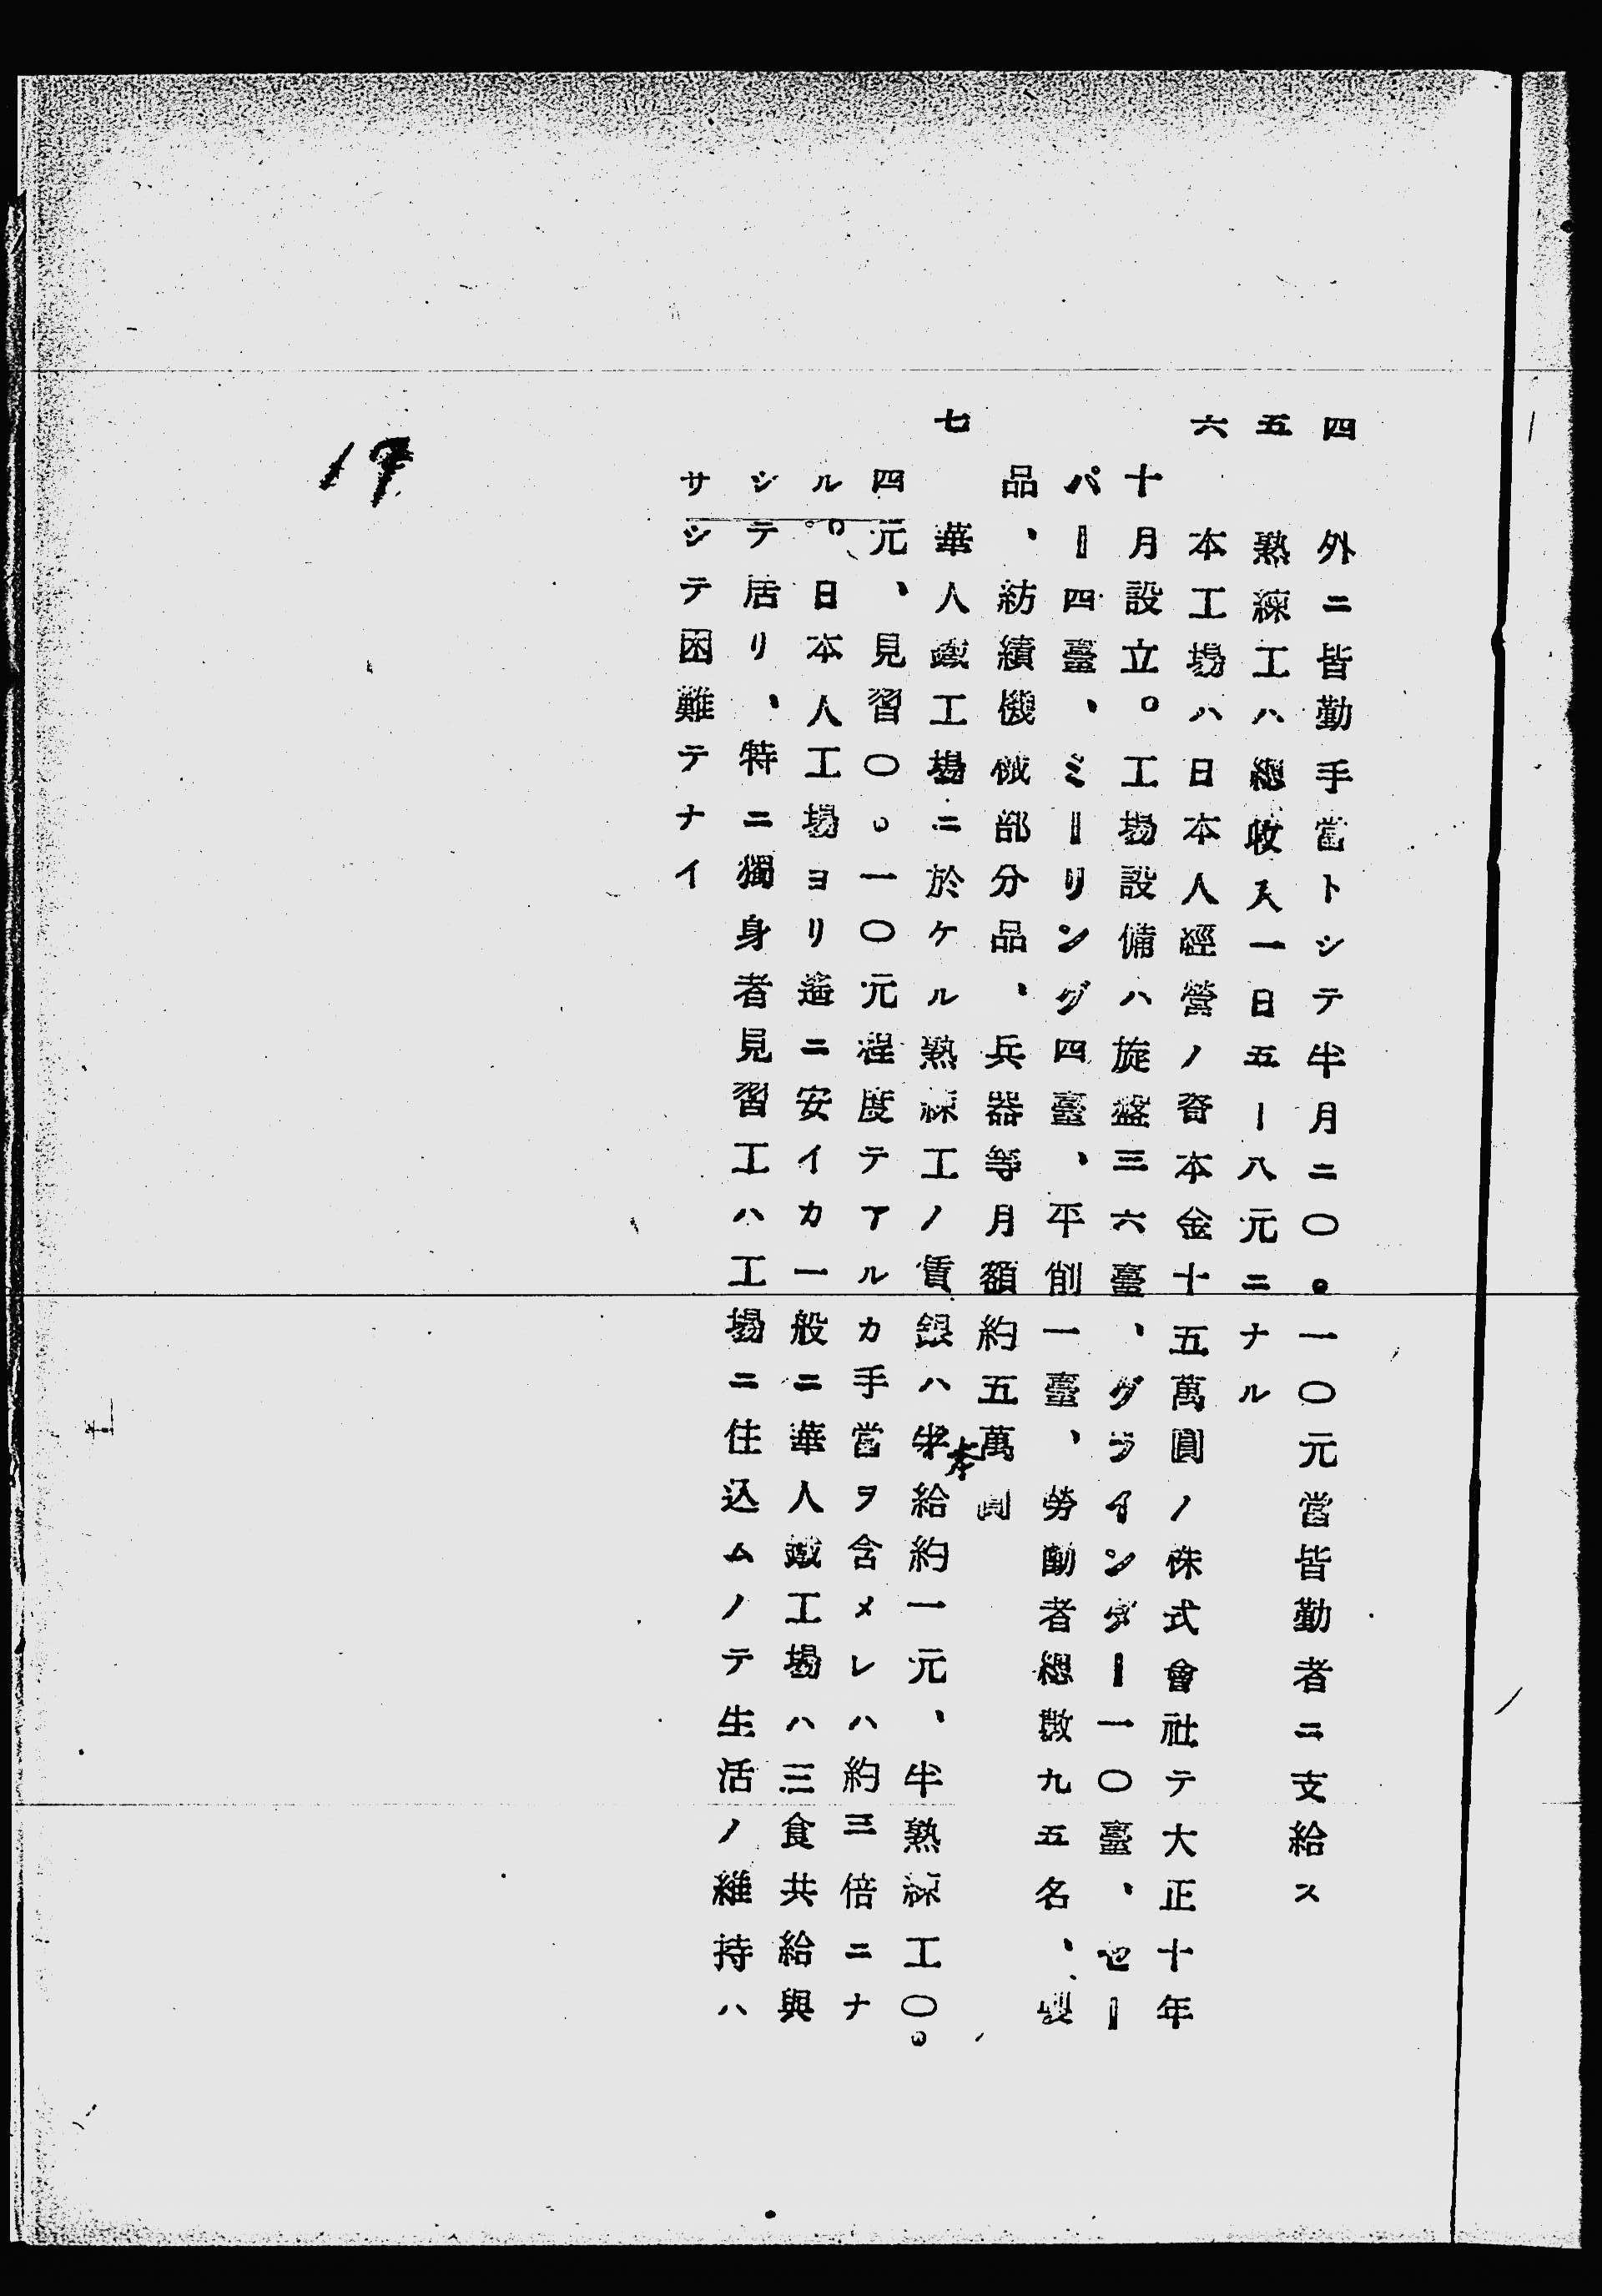 四　外ニ皆勤手當トシテ半月ニ〇。一〇元當皆勤者ニ支給ス
五　熟練工ハ總收入一日五ー八元ニナル
六　本工場ハ日本人經營ノ資本金十五萬圓ノ株式會社テ大正十年
十月設立。工場設備ハ旋盤三六臺、グラインダー一〇臺、セー
パー四臺、ミーリング四臺、平削一臺、勞働者總數九五名、製
品、紡績機械部分品、兵器等月額約五萬圓
七　華人鐵工場ニ於ケル熟練工ノ賃銀ハ本給約一元、半熟練工〇。
四元、見習〇。一〇元程度テアルカ手當ヲ含メレハ約三倍ニナ
ル。日本人工場ヨリ遙ニ安イカ一般ニ華人鐵工場ハ三食共給與
シテ居リ、特ニ獨身者見習工ハ工場ニ住込ムノテ生活ノ維持ハ
サシテ困難テナイ
19